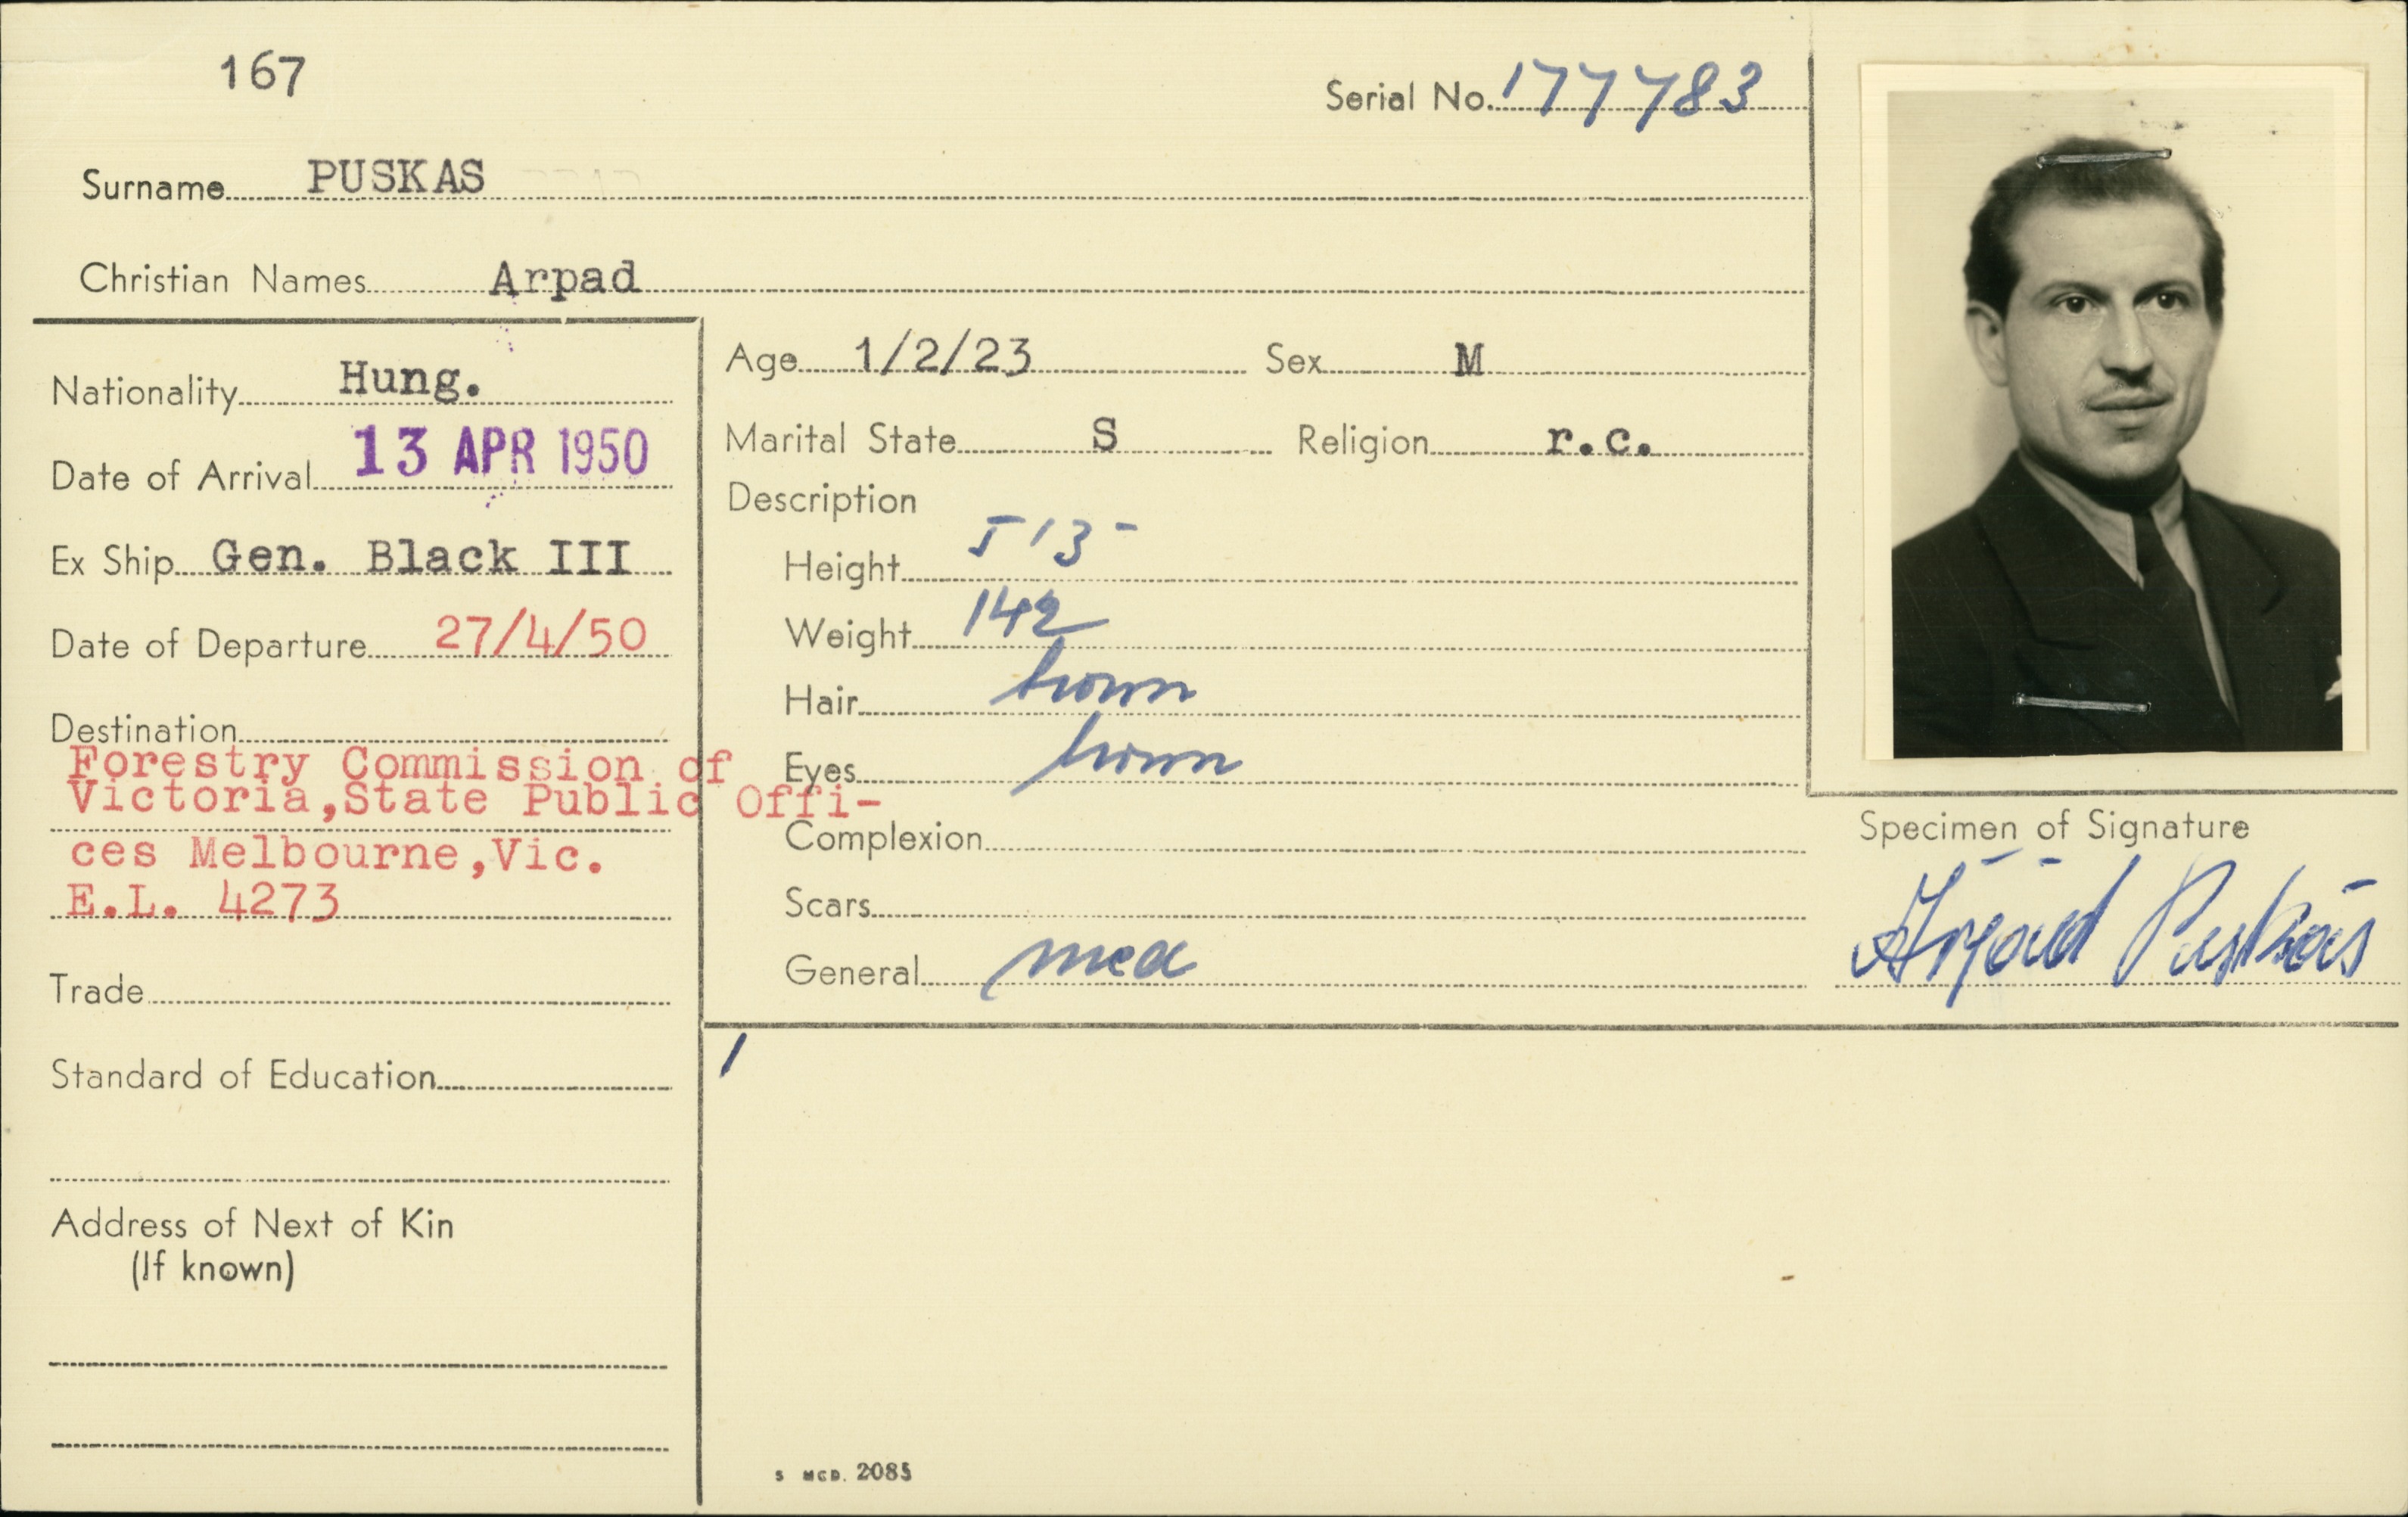 167
Serial No. 177783
Surname PUSKAS
Christian Names Arpad
Nationality Hung.
Date of Arrival 13 APR 1950
Ex Ship Gen. Black III
Date of Departure 27/4/50
Destination
Forestry Commission of
Victoria,State Public Offi-
ces Melbourne,Vic.
E.L. 4273
Trade
Standard of Education
Address of Next of Kin
(If known)
Age 1/2/23 Sex M
Marital State S Religion r.c.
Description
Height 5'3"
Weight 142
Hair brown
Eyes brown
Complexion
Scars
General med
Specimen of Signature
Árpád Puskás
1
S MCD. 2085